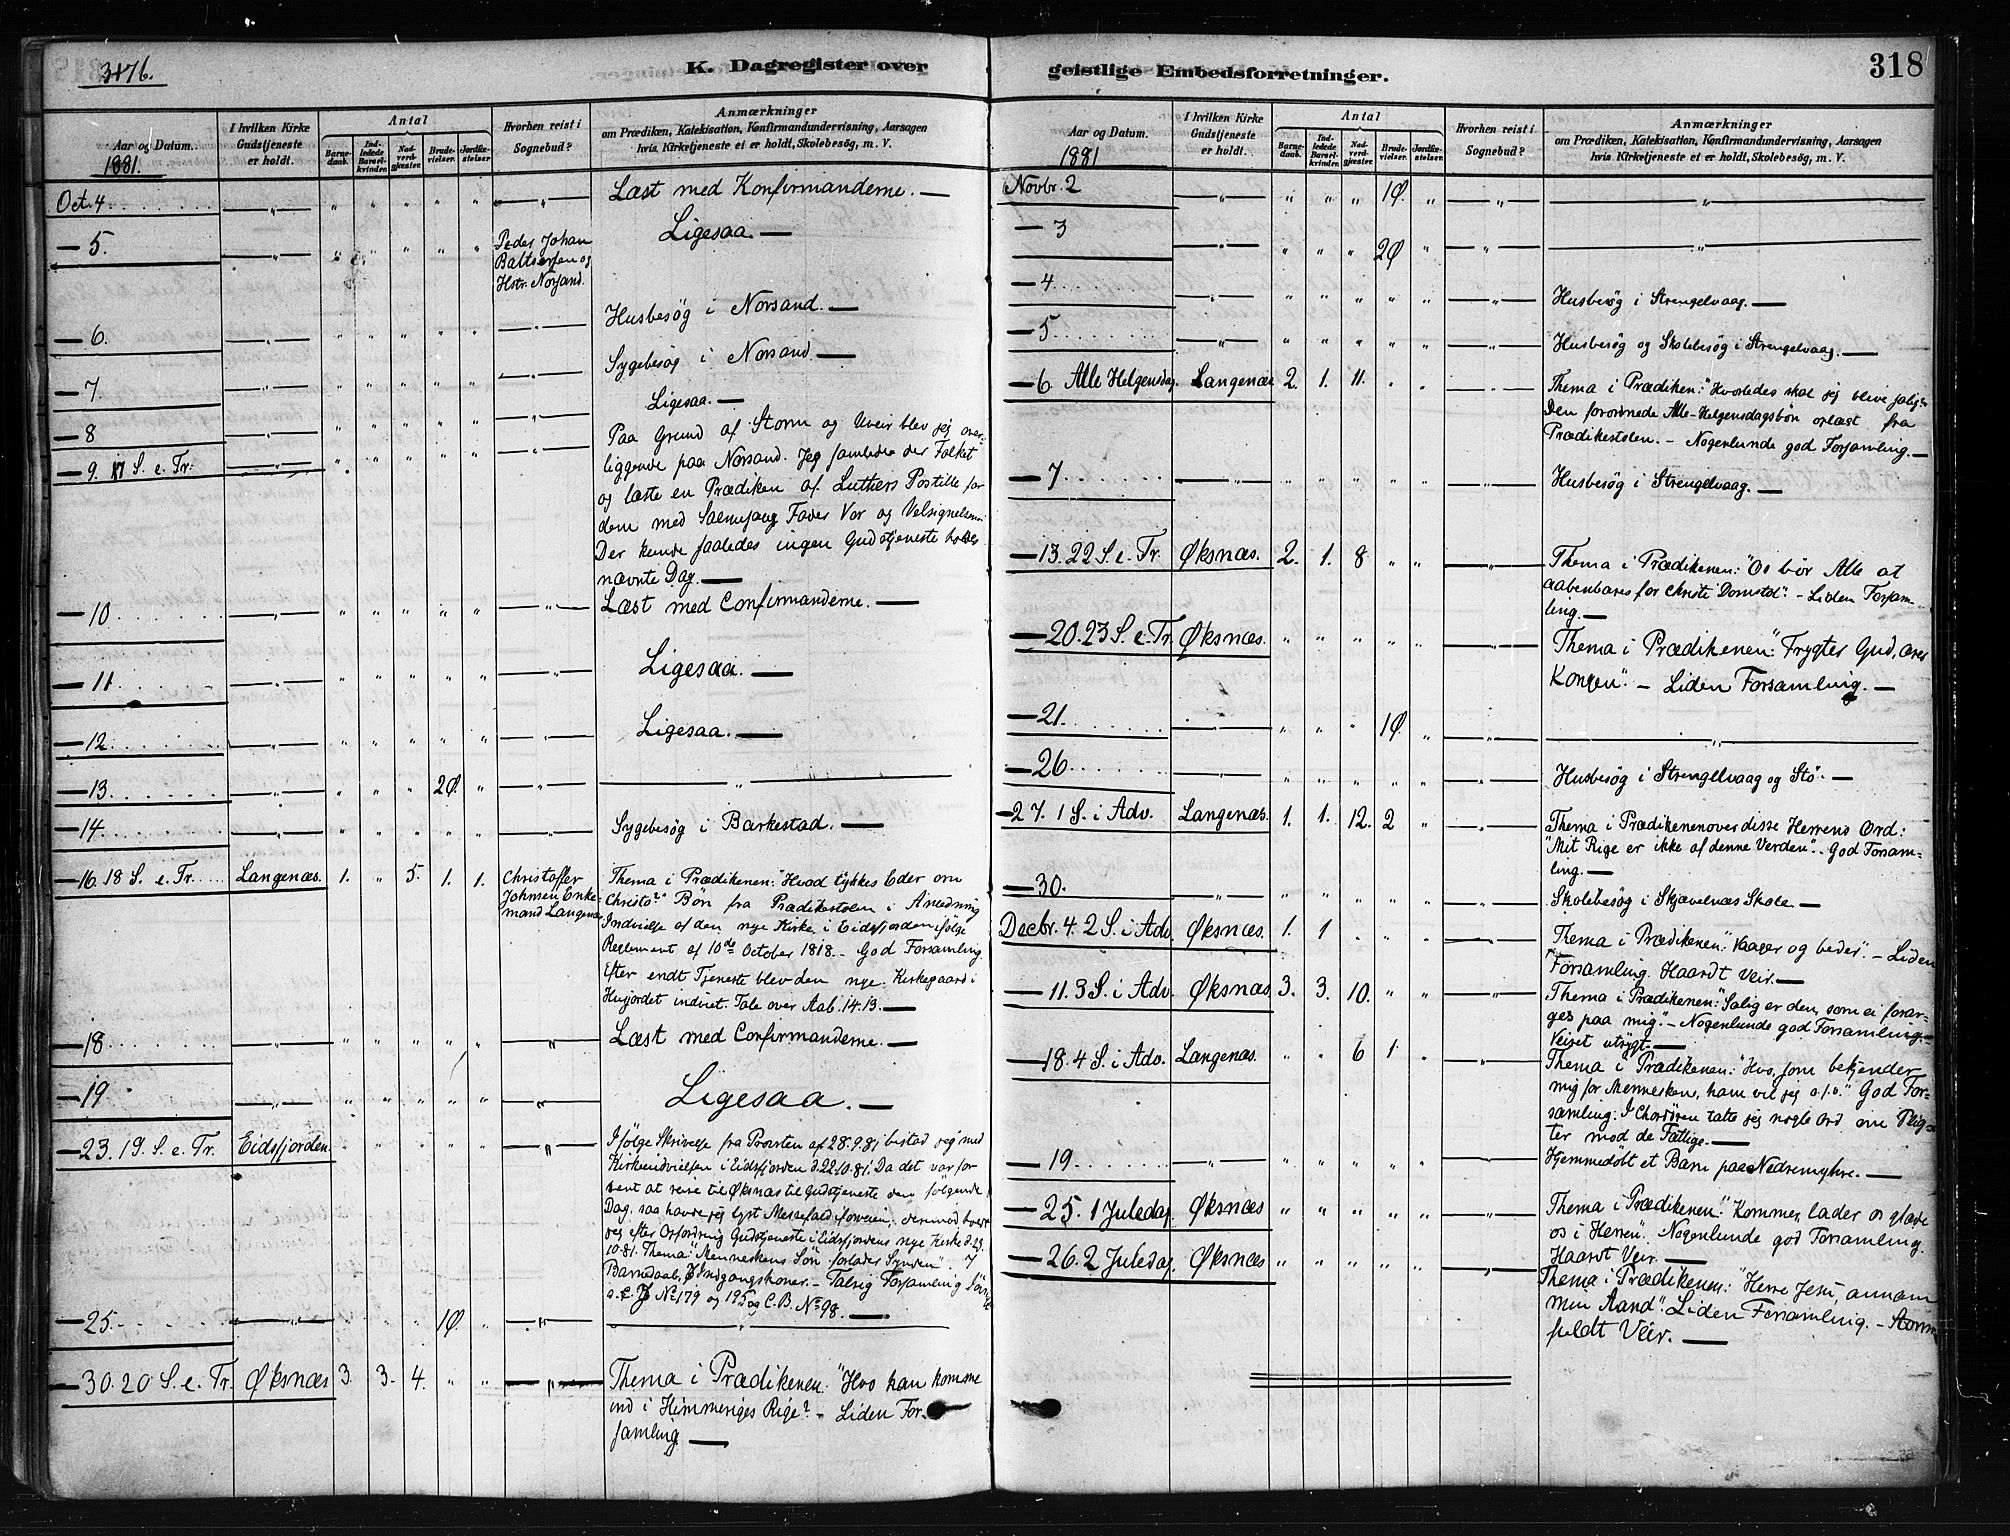 3176.
K. Dagregister over
Aar og Datum.
1881.
I hvilken Kirke Gudstjeneste er holdt.
Antal
Barnedaab.
Indledede Barselkvinder.
Nadverdgjester.
Brudevielser.
Jordfæstelser.
Hvorhen reist i Sognebud?
Anmærkninger
om Prædiken, Katekisation, Konfirmandundervisning, Aarsagen
hvis Kirketjeneste ei er holdt, Skolebesøg, m. V.
Oct. 4 " " " " " " " Læst med Konfirmanderne. —
— 5. " " " " " " Peder Johan Ligesaa. —
Baltsersen og
Hstr. Norsand.
— 6. " " " " " " " Husbesøg i Norsand. —
— 7 " " " " " " " Sygebesøg i Norsand —
— 8 " " " " " " " Ligesaa. —
— 9. 17 S. e. Tr: " " " Paa Grund af Storm og Uveir blev jeg over-
liggende paa Norsand. Jeg samlede der Folket
og læste en Prædiken af Luthers Postille for
dem med Salmesang Fader Vor og Velsignelsen
Der kunde saaledes ingen Gudstjeneste holdes
nævnte Dag. —
— 10 " " " " " " " Læst med Confirmanderne. —
— 11. " " " " " " " Ligesaa. —
— 12 " " " " " " " Ligesaa. —
— 13. " " " " 2Ø. " " "
— 14. " " " " " " " Sygebesøg i Barkestad. —
— 16. 18 S. e. Tr. Langenæs. 1. " 5. 1. 1. Christoffer Thema i Prædikenen: "Hvad tykkes Eder om
Johnsen Enke- Christo?" Bøn fra Prædikestolen i Anledning
mand Langenæs Indvielse af den nye Kirke i Eidsfjorden ifølge
Reglement af 10de October 1818. – God Forsamling
Efter endt Tjeneste blev den nye Kirkegaard i
indviet. Tale over Aab. 14. 13. —
— 18 " " " " " " " Læst med Confirmanderne. —
— 19 " " " " " " " Ligesaa. —
— 23. 19. S. e. Tr. Eidsfjorden. " " " " " " Ifølge Skrivelse fra Provsten af 28.9.81 bistod jeg med
Kirkeindvielsen i Eidsfjorden d. 22.10.81. Da det var for
sent at reise til Øksnæs til Gudstjeneste den følgende
Dag, saa havde jeg lyst Messefald forveien; derimod
jeg efter Opfordring Gudstjeneste i Eidsfjordens nye Kirke d. 23.
10.81. Thema: "Menneskens Søn forlader Synden".
Barnedaab, Indgangskoner. – Talrig Forsamling
No 179 og 195 og C. B. No 98. —
— 25. " " " " 1Ø. " " "
— 30. 20 S. e. Tr. Øksnæs 3. 3. 4. " " " Thema i Prædikenen: "Hvo kan komme
ind i Himmeriges Rige? – Liden For-
samling —
geistlige Embedsforretninger.
318
Aar og Datum.
1881
I hvilken Kirke Gudstjeneste er holdt.
Antal
Barnedaab.
Indledede Barselkvinder.
Nadverdgjester.
Brudevielser.
Jordfæstelser.
Hvorhen reist i Sognebud?
Anmærkninger
om Prædiken, Katekisation, Konfirmandundervisning, Aarsagen
hvis Kirketjeneste ei er holdt, Skolebesøg, m. V.
Novbr. 2 " " " " 1Ø. " " "
— 3 " " " " 2Ø " " "
— 4 " " " " " " " Husbesøg i Strengelvaag. —
— 5 " " " " " " " Husbesøg og Skolebesøg i Strengelvaag. —
— 6. Alle Helgensdag. Langenæs 2. 1. 11. " " " Thema i Prædiken: "Hvorledes skal jeg blive salig?"
Den forordnede Alle-Helgensdagsbøn oplæst fra
Prædikestolen. – Nogenlunde god Forsamling. —
— 7 " " " " " " " Husbesøg i Strengelvaag. —
— 13. 22 S. e. Tr. Øksnæs. 2. 1. 8. " " " Thema i Prædikenen: "Os bør Alle at
aabenbares for Christi Domstol". – Liden Forsam-
ling. —
— 20. 23 S. e. Tr. Øksnæs. " " " " " " Thema i Prædikenen: "Frygter Gud, ærer
Kongen". – Liden Forsamling. —
— 21. " " " " 1Ø " " "
— 26 " " " " " " " Husbesøg i Strengelvaag og Stø. —
— 27. 1 S. i Adv. Langenæs. 1. 1. 12. 2 " Thema i Prædikenen over disse Herrens Ord:
"Mit Rige er ikke af denne Verden". God Forsam-
ling. —
— 30. " " " " " " " Skolebesøg i Skjævelnæs Skole. —
Decbr. 4. 2 S. i Adv. Øksnæs. 1. 1 " " " " Thema i Prædikenen: "Vaager og beder". – Liden
Forsamling. Haardt Veir. —
— 11. 3 S. i Adv. Øksnæs 3. 3. 10. " " " Thema i Prædikenen: "Salig er den, som ei forar-
ges paa mig". – Nogenlunde god Forsamling.
Veiret utrygt. —
— 18. 4 S. i Adv. Langenæs. " " 6 1 " " Thema i Prædikenen: "Hvo, som bekjender
mig for Menneskene, ham vil jeg o.s.v." God For-
samling. I Chordøren talte jeg nogle Ord om Plig-
ter mod de Fattige. —
— 19 " " " " " " " Hjemmedøbt et Barn paa Nedremyhre. —
— 25. 1 Juledag Øksnæs " " " " " " Thema i Prædikenen: "Kommer, lader os glæde
os i Herren". Nogenlunde god Forsamling.
Haardt Veir. —
— 26. 2 Juledag Øksnæs " " " " " " Thema i Prædikenen: "Herre Jesu, annam
min Aand". Liden Forsamling. – Storm-
fuldt Veir. —